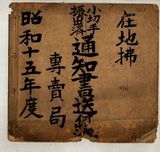 在地拂
小切手
振出濟
通知書送付
專賣局
昭和十五年度